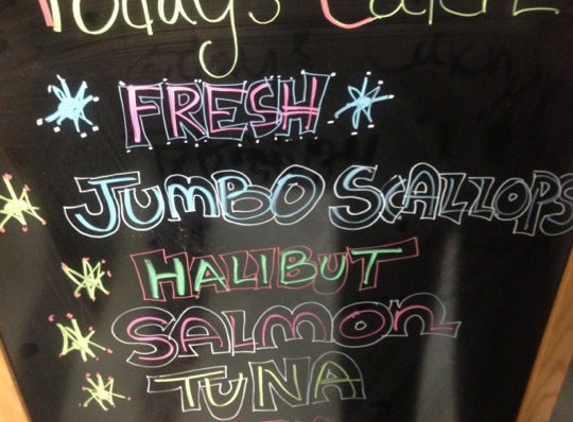 Today's Catch
FRESH
JUMBO SCALLOPS
HALIBUT
SALMON
TUNA